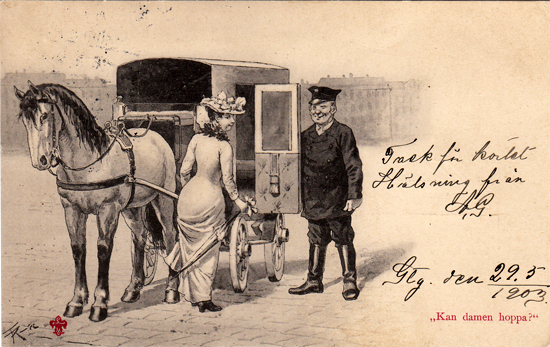 Tack för kortet
Hälsning från
A.G.
Gtg. den 29.5
1903
„Kan damen hoppa?“